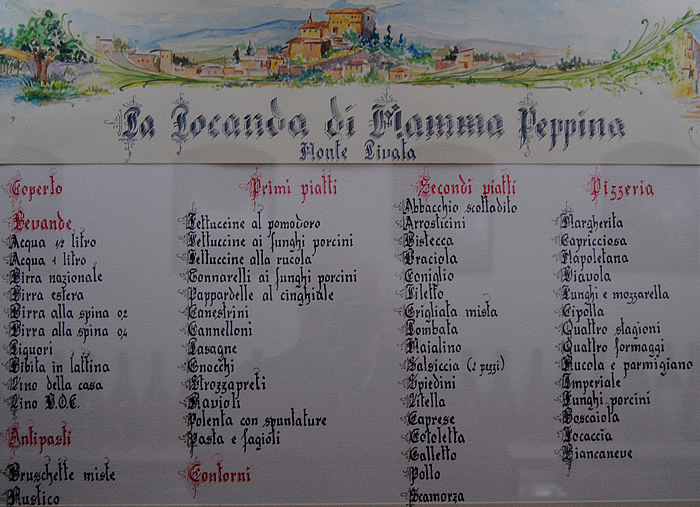 La Locanda di Mamma Peppina
Monte Livata
Coperto
Bevande
Acqua 1/2 litro
Acqua 1 litro
Birra nazionale
Birra estera
Birra alla spina 0,2
Birra alla spina 0,4
Liquori
Bibita in lattina
Vino della casa
Vino D.O.C.
Antipasti
Bruschette miste
Rustico
Primi piatti
Fettuccine al pomodoro
Fettuccine ai funghi porcini
Fettuccine alla rucola
Tonnarelli ai funghi porcini
Pappardelle al cinghiale
Canestrini
Cannelloni
Lasagne
Gnocchi
Strozzapreti
Ravioli
Polenta con spuntature
Pasta e fagioli
Contorni
Secondi piatti
Abbacchio scottadito
Arrosticini
Bistecca
Braciola
Coniglio
Filetto
Grigliata mista
Lombata
Maialino
Salsiccia (2 pezzi)
Spiedini
Vitella
Caprese
Cotoletta
Galletto
Pollo
Scamorza
Pizzeria
Margherita
Capricciosa
Napoletana
Diavola
Funghi e mozzarella
Cipolla
Quattro stagioni
Quattro formaggi
Rucola e parmigiano
Imperiale
Funghi porcini
Boscaiola
Focaccia
Biancaneve